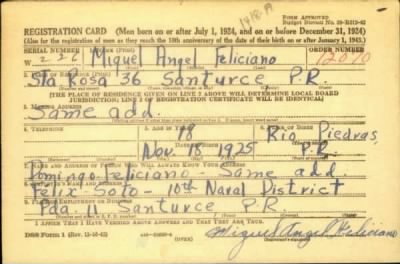 1418-A
FORM APPROVED
Budget Bureau No. 33-R012-42
REGISTRATION CARD (Men born on or after July 1, 1924, and on or before December 31, 1924)
(Also for the registration of men as they reach the 18th anniversary of the date of their birth on or after January 1, 1943.)
SERIAL NUMBER 1. NAME (Print) ORDER NUMBER
W 226 Miguel Angel Feliciano 12010
2. PLACE OF RESIDENCE (Print)
Sta Rosa 36 Santurce P.R.
[THE PLACE OF RESIDENCE GIVEN ON LINE 2 ABOVE WILL DETERMINE LOCAL BOARD
JURISDICTION; LINE 2 OF REGISTRATION CERTIFICATE WILL BE IDENTICAL]
3. MAILING ADDRESS
Same add.
4. TELEPHONE 5. AGE IN YEARS 6. PLACE OF BIRTH
18 Rio Piedras,
Nov. 18 1925 P.R.
7. NAME AND ADDRESS OF PERSON WHO WILL ALWAYS KNOW YOUR ADDRESS
Domingo Feliciano - Same add.
8. EMPLOYER'S NAME AND ADDRESS
Felix Soto - 10th Naval District
9. PLACE OF EMPLOYMENT OR BUSINESS
Pda. 11 Santurce P.R.
I AFFIRM THAT I HAVE VERIFIED ABOVE ANSWERS AND THAT THEY ARE TRUE.
DSS Form 1 (OVER) Miguel Angel Feliciano